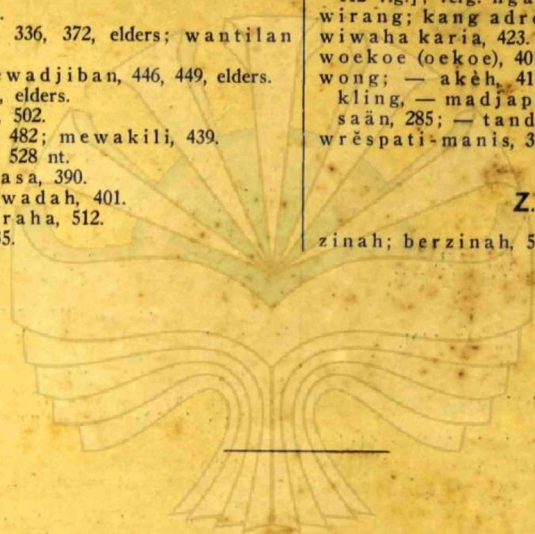 336, 372, elders; wantilan
ewadjiban, 446, 449, elders.
, elders.
, 502.
482; mewakili, 439.
528 nt.
asa, 390.
wadah, 401.
raha, 512.
5.
wirang; kang adre
wiwaha karia, 423.
woekoe (oekoe), 40
wong; — akèh, 41
kling, — madjap
saän, 285; — tand
wrĕspati-manis, 3
Z.
zinah; berzinah, 5